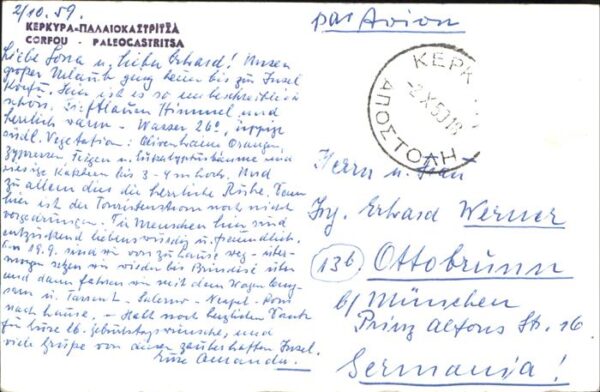 2/10.59.
ΚΕΡΚΥΡΑ-ΠΑΛΑΙΟΚΑΣΤΡΙΤΣΑ
CORFOU - PALEOCASTRITSA
Liebe Lona u. lieber Erhard! Unser
großer Urlaub ging heuer bis zur Insel
Korfu. Hier ist es so unbeschreiblich
schön. Tiefblauer Himmel und
herrlich warm - Wasser 26°, üppige
südl. Vegetation: Olivenhaine Orangen,
Zypressen, Feigen u. Eukalyptusbäume und
riesige Kakteen bis 3-4 m hoch. Und
zu allem dies die herrliche Ruhe. Denn
hier ist der Touristenstrom noch nicht
vorgedrungen. Die Menschen hier sind
entzückend liebenswürdig u. freundlich.
Am 19.9. sind wir von zu Hause weg - über-
morgen setzen wir wieder bis Brindisi über
und dann fahren wir mit dem Wagen lang-
sam u. Tarent - Salerno - Neapel - Rom
nach Hause. - Habt noch herzlichen Dank
für Eure lb. Geburtstagswünsche, und
viele Grüße von dieser zauberhaften Insel.
Eure Amanda.
par Avion
ΚΕΡΚ
-2.Χ.59 18
ΑΠΟΣΤΟΛΗ
Herrn u. Frau
Ing. Erhard Werner
(13b) Ottobrunn
b/ München
Prinz Alfons Str. 16
Germania!